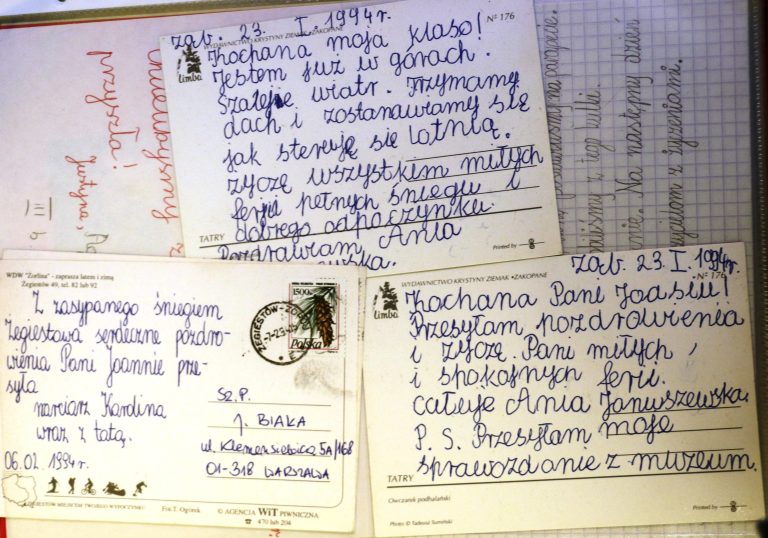 Ząb. 23. I. 1994r.
WYDAWNICTWO KRYSTYNY ZIEMAK • ZAKOPANE
Nº 176
limba
Kochana moja klaso!
Jestem już w górach.
Szaleje wiatr. Trzymamy
dach i zostanawiamy się
jak steruję się lotnią.
życzę wszystkim miłych
ferii pełnych śniegu i
dobrego odpoczynku.
TATRY
Printed by
Pozdrawiam Ania
przyszła!
Justyna,
III b
Na następny dzień
WDW "Zorlina" - zaprasza latem i zimą
Żegiestów 49, tel. 82 lub 92
Z zasypanego śniegiem
Żegiestowa serdeczne pozdro-
wienia Pani Joannie prze-
syła
narciarz Karolina
wraz z tatą.
06.02. 1994r.
1500
Polska
Sz. P.
J. BIAŁA
ul. Klemensiewicza 5A/168
01-318 WARSZAWA
ŻEGIESTÓW MIEJSCEM TWOJEGO WYPOCZYNKU
Fot. T. Ogórek
© AGENCJA WiT PIWNICZNA
☎ 470 lub 204
Ząb. 23. I. 1994r.
WYDAWNICTWO KRYSTYNY ZIEMAK • ZAKOPANE
Nº 176
limba
Kochana Pani Joasiu!
Przesyłam pozdrowienia
i życzę Pani miłych,
i spokojnych ferii.
całuje Ania Januszewska.
P. S. Przesyłam moje
sprawozdanie z muzeum.
TATRY
Owczarek podhalański
Photo © Tadeusz Sumiński
Printed by